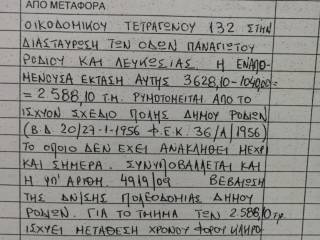 ΑΠΟ ΜΕΤΑΦΟΡΑ
ΟΙΚΟΔΟΜΙΚΟΥ ΤΕΤΡΑΓΩΝΟΥ 132 ΣΤΗΝ
ΔΙΑΣΤΑΥΡΩΣΗ ΤΩΝ ΟΔΩΝ ΠΑΝΑΓΙΩΤΟΥ
ΡΟΔΙΟΥ ΚΑΙ ΛΕΥΚΩΣΙΑΣ. Η ΕΝΑΠΟ-
ΜΕΝΟΥΣΑ ΕΚΤΑΣΗ ΑΥΤΗΣ 3628,10-1040,00=
= 2.588,10 Τ.Μ. ΡΥΜΟΤΟΜΕΙΤΑΙ ΑΠΟ ΤΟ
ΙΣΧΥΟΝ ΣΧΕΔΙΟ ΠΟΛΗΣ ΔΗΜΟΥ ΡΟΔΙΩΝ
(Β.Δ. 20/27-1-1956 Φ.Ε.Κ. 36/Α/1956)
ΤΟ ΟΠΟΙΟ ΔΕΝ ΕΧΕΙ ΑΝΑΚΛΗΘΕΙ ΜΕΧΡΙ
ΚΑΙ ΣΗΜΕΡΑ. ΣΥΝΥΠΟΒΑΛΛΕΤΑΙ ΚΑΙ
Η ΥΠ' ΑΡΙΘΜ. 4919/09 ΒΕΒΑΙΩΣΗ
ΤΗΣ Δ/ΝΣΗΣ ΠΟΛΕΟΔΟΜΙΑΣ ΔΗΜΟΥ
ΡΟΔΙΩΝ. ΓΙΑ ΤΟ ΤΜΗΜΑ ΤΩΝ 2588,10 τ.μ.
ΙΣΧΥΕΙ ΜΕΤΑΘΕΣΗ ΧΡΟΝΟΥ ΦΟΡΟΥ ΚΛΗΡΟ